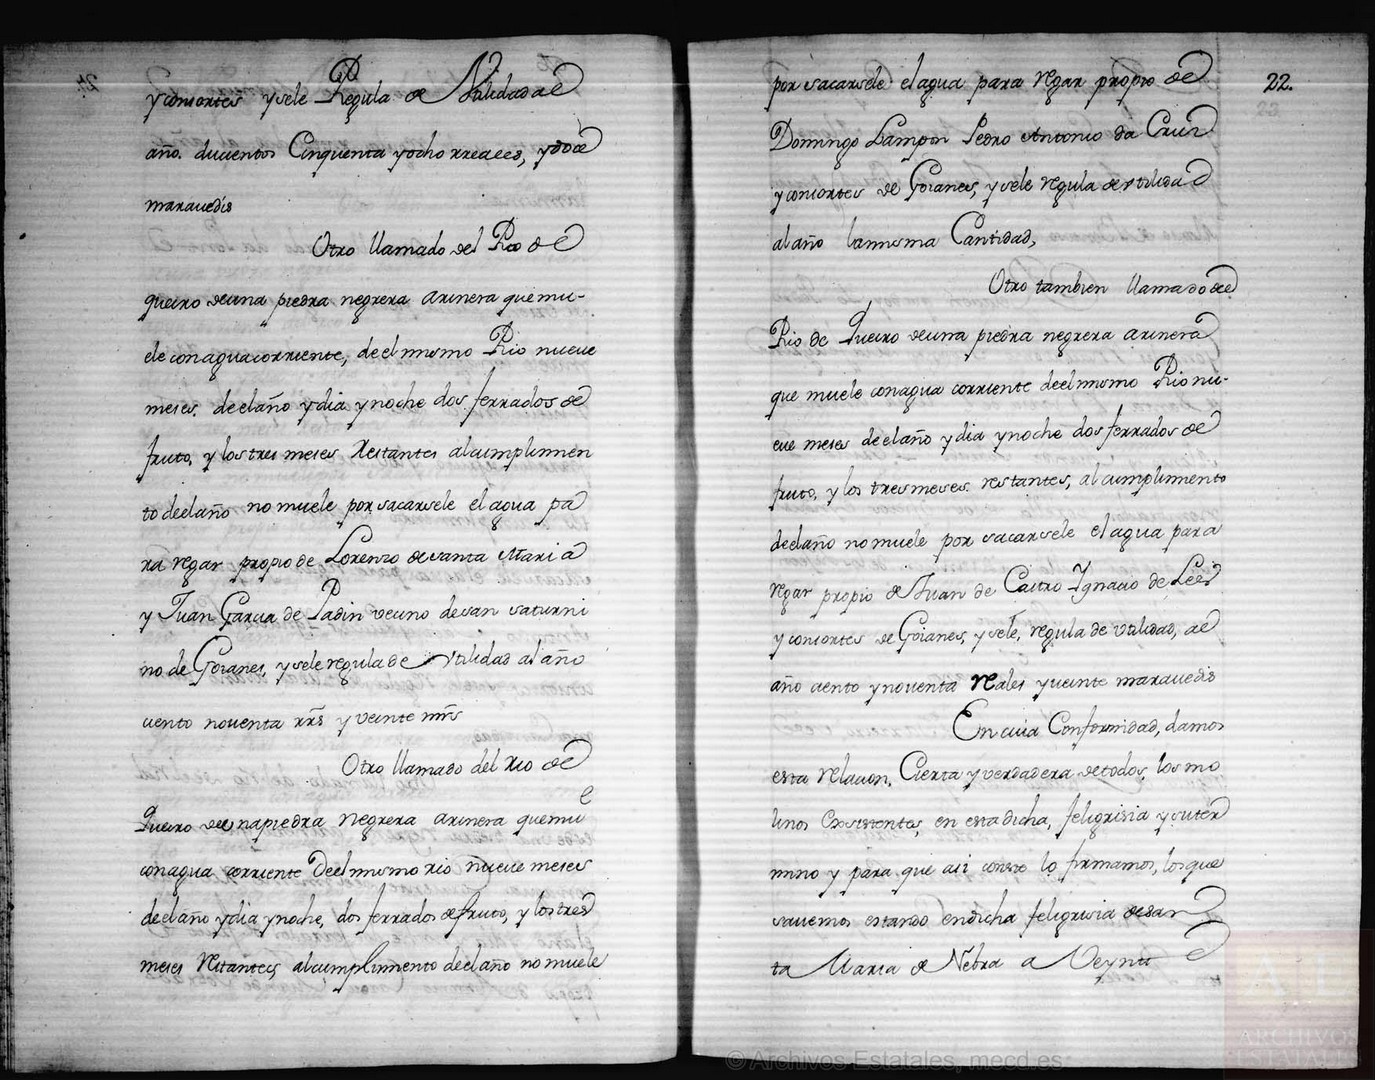 y consortes y sele Regula de Utilidad al
año. ducientos Cinquenta y ocho rreales, y doce
maravedis
Otro llamado del Rio de
queiro de una piedra negrera arinera que mu-
ele con agua corriente, de el mismo Rio nueve
meses de el año y dia y noche dos ferrados de
fruto, y los tres meses Restantes al cumplimien
to de el año no muele por sacarsele el agua pa
ra regar propio de Lorenzo de santa Maria
y Juan Garcia de Padin vecino de san saturni
no de Goianes, y sele regula de Utilidad al año
ciento noventa rrs y veinte mrs
Otro llamado del rio de
Queiro de una piedra negrera arinera que mue
con agua corriente De el mismo rio nueve meses
de el año y dia y noche, dos ferrados de fruto, y los tres
meses Restantes al cumplimiento de el año no muele
22.
23
por sacarsele el agua para regar propio de
Domingo Lampon Pedro Antonio da Cruz
y consortes de Goianes, y sele regula de utilidad
al año la misma Cantidad,
Otro tambien llamado de
Rio de Queiro de una piedra negrera arinera
que muele con agua corriente de el mismo Rio nu-
eve meses de el año y dia y noche dos ferrados de
fruto, y los tres meses restantes, al cumplimento
de el año no muele por sacarsele el agua para
regar propio de Juan de Castro Ygnacio de Leis
y consortes de Goianes, y sele, regula de utilidad, al
año ciento y noventa reales y veinte maravedis
En cuia Conformidad, damos
esta relacion, Cierta y verdadera de todos, los mo
linos Existentes, en esta dicha, feligrisia y su ter
mino y para que asi conste lo firmamos, los que
savemos estando en dicha feligrisia de san
ta Maria de Nebra a Veynte
© Archivos Estatales, mecd.es
ARCHIVOS
ESTATALES